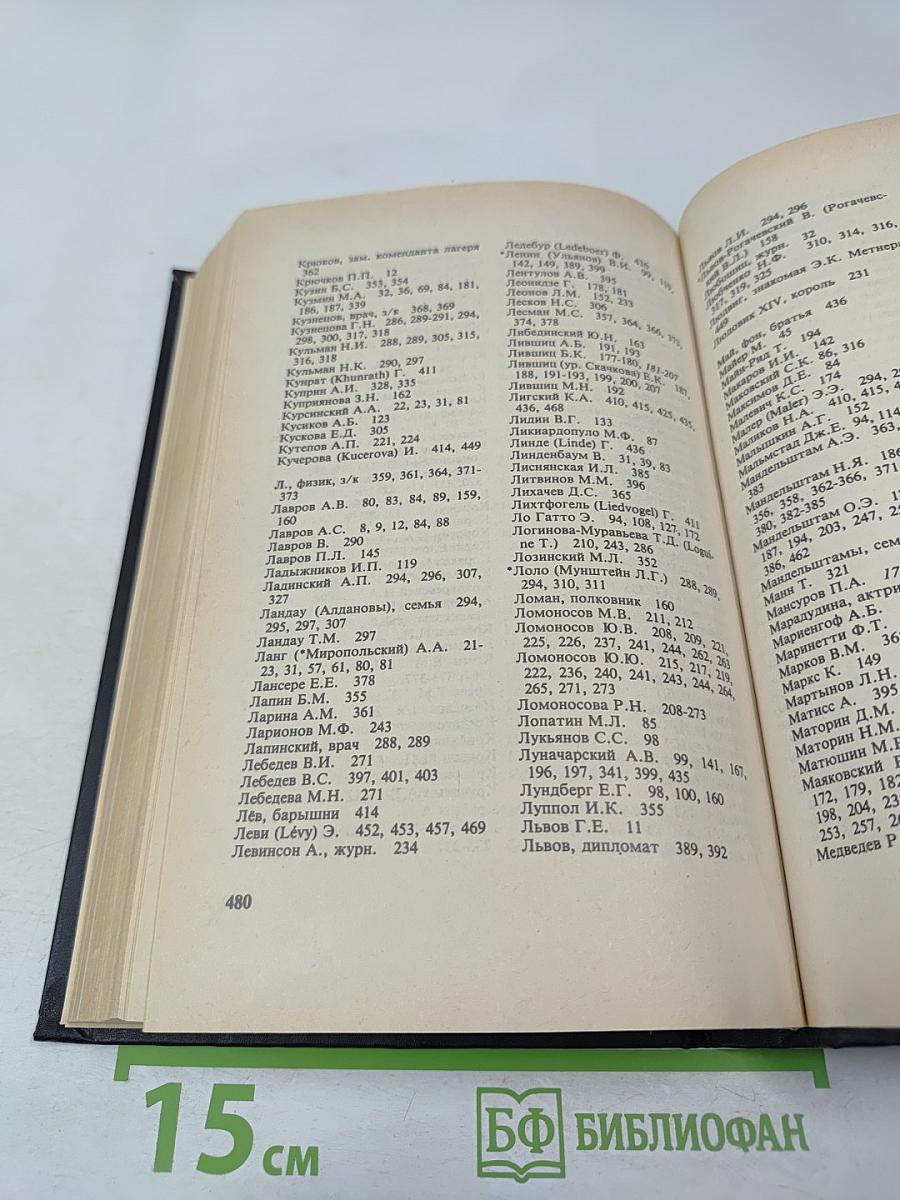 Крюков, зам. коменданта лагеря
362
Крючков П.П. 12
Кузин Б.С. 353, 354
Кузмин М.А. 32, 36, 69, 84, 181,
186, 187, 339
Кузнецов, врач, з/к 368, 369
Кузнецова Г.Н. 286, 289-291, 294,
298, 300, 317, 318
Кульман Н.И. 288, 289, 305, 315,
316, 318
Кульман Н.К. 290, 297
Кунрат (Khunrath) Г. 411
Куприн А.И. 328, 335
Куприянова З.Н. 162
Курсинский А.А. 22, 23, 31, 81
Кусиков А.Б. 123
Кускова Е.Д. 305
Кутепов А.П. 221, 224
Кучерова (Kucerova) И. 414, 449
Л., физик, з/к 359, 361, 364, 371-
373
Лавров А.В. 80, 83, 84, 89, 159,
160
Лавров А.С. 8, 9, 12, 84, 88
Лавров В. 290
Лавров П.Л. 145
Ладыжников И.П. 119
Ладинский А.П. 294, 296, 307,
327
Ландау (Алдановы), семья 294,
295, 297, 307
Ландау Т.М. 297
Ланг (*Миропольский) А.А. 21-
23, 31, 57, 61, 80, 81
Лансере Е.Е. 378
Лапин Б.М. 355
Ларина А.М. 361
Ларионов М.Ф. 243
Лапинский, врач 288, 289
Лебедев В.И. 271
Лебедев В.С. 397, 401, 403
Лебедева М.Н. 271
Лёв, барышни 414
Леви (Lévy) Э. 452, 453, 457, 469
Левинсон А., журн. 234
480
Ледебур (Ledeboer) Ф. 436
*Ленин (Ульянов) В.И. 99,
142, 149, 389, 399
Лентулов А.В. 395
Леонидзе Г. 178, 181
Леонов Л.М. 152, 233
Лесков Н.С. 306
Лесман М.С. 357, 364, 366, 373,
374, 378
Либединский Ю.Н. 163
Лившиц А.Б. 191, 193
Лившиц Б.К. 177-180, 181-207
Лившиц (ур. Скачкова) Е.К. 187,
188, 191-193, 199, 200, 207
Лившиц М.Н. 192
Лигский К.А. 410, 415, 425, 435,
436, 468
Лидин В.Г. 133
Ликиардопуло М.Ф. 87
Линде (Linde) Г. 436
Линденбаум В. 31, 39, 83
Лиснянская И.Л. 385
Литвинов М.М. 396
Лихачев Д.С. 365
Лихтфогель (Liedvogel) Г. 411
Ло Гатто Э. 94, 108, 127, 172
Логинова-Муравьева Т.Д. (Logui-
ne T.) 210, 243, 286
Лозинский М.Л. 352
*Лоло (Мунштейн Л.Г.) 288, 289,
294, 310, 311
Ломан, полковник 160
Ломоносов М.В. 211, 212
Ломоносов Ю.В. 208, 209, 221,
225, 226, 237, 241, 244, 262, 263
Ломоносов Ю.Ю. 215, 217, 219,
222, 236, 240, 241, 243, 244, 264,
265, 271, 273
Ломоносова Р.Н. 208-273
Лопатин М.Л. 85
Лукьянов С.С. 98
Луначарский А.В. 99, 141, 167,
196, 197, 341, 399, 435
Лундберг Е.Г. 98, 100, 160
Луппол И.К. 355
Львов Г.Е. 11
Львов, дипломат 389, 392
Львов Л.И. 294, 296
*Львов-Рогачевский В. (Рогачевс-
кий В.Л.) 158
Любошиц, журн. 32
Любченко Н.Ф. 310, 314, 316,
317, 319, 325
Людвиг, знакомая Э.К. Метнера
449
Людовик XIV, король 231
Май, фон, братья 436
Майер М. 45
Майн-Рид Т. 194
Макаров И.И. 142
Маковский С.К. 86, 316
Максимов Д.Е. 84
Малевич К.С. 174
Малер (Maler) Э.Э. 294,
Маликов Н.А. 410, 415,
Малышкин А.Г. 152
Мальмстад Дж.Е. 94, 114
Мандельштам А.Э. 363,
383
Мандельштам Н.Я. 186
356, 358, 362-366, 371
380, 382-385
Мандельштам О.Э.
187, 194, 203, 247,
386, 462
Мандельштамы, сем
Манн Т. 321
Мансуров П.А.
Марадудина, актри
Мариенгоф А.Б.
Маринетти Ф.Т.
Марков В.М. 36
Маркс К. 149
Мартынов Л.Н.
Матисс А. 395
Маторин Д.М.
Маторин Н.М.
Матюшин М.
Маяковский
172, 179, 182
198, 204,
253, 257,
Медведев Р
15 см
БФ БИБЛИОФАН